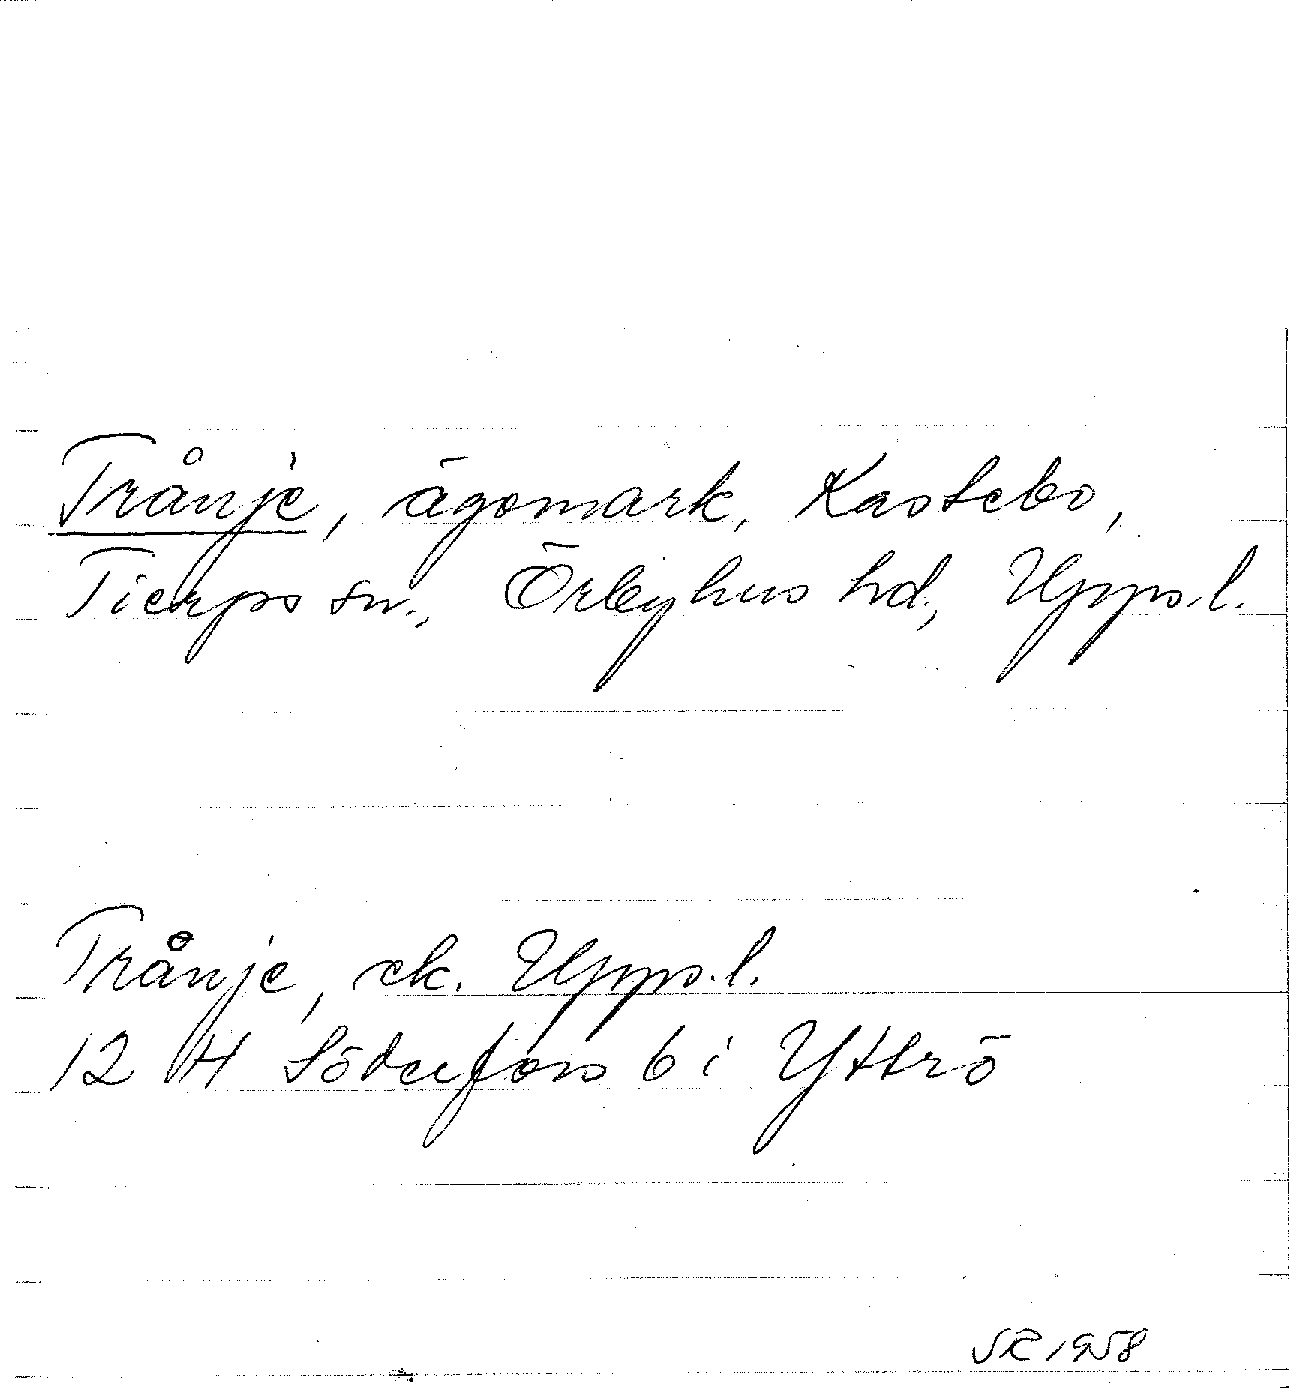 Trånje, ägomark, Kastebo,
Tierps sn., Örbyhus hd., Upps.l.
Trånje, ek. Upps.l.
12 H Söderfors 6 i Yttrö
1958